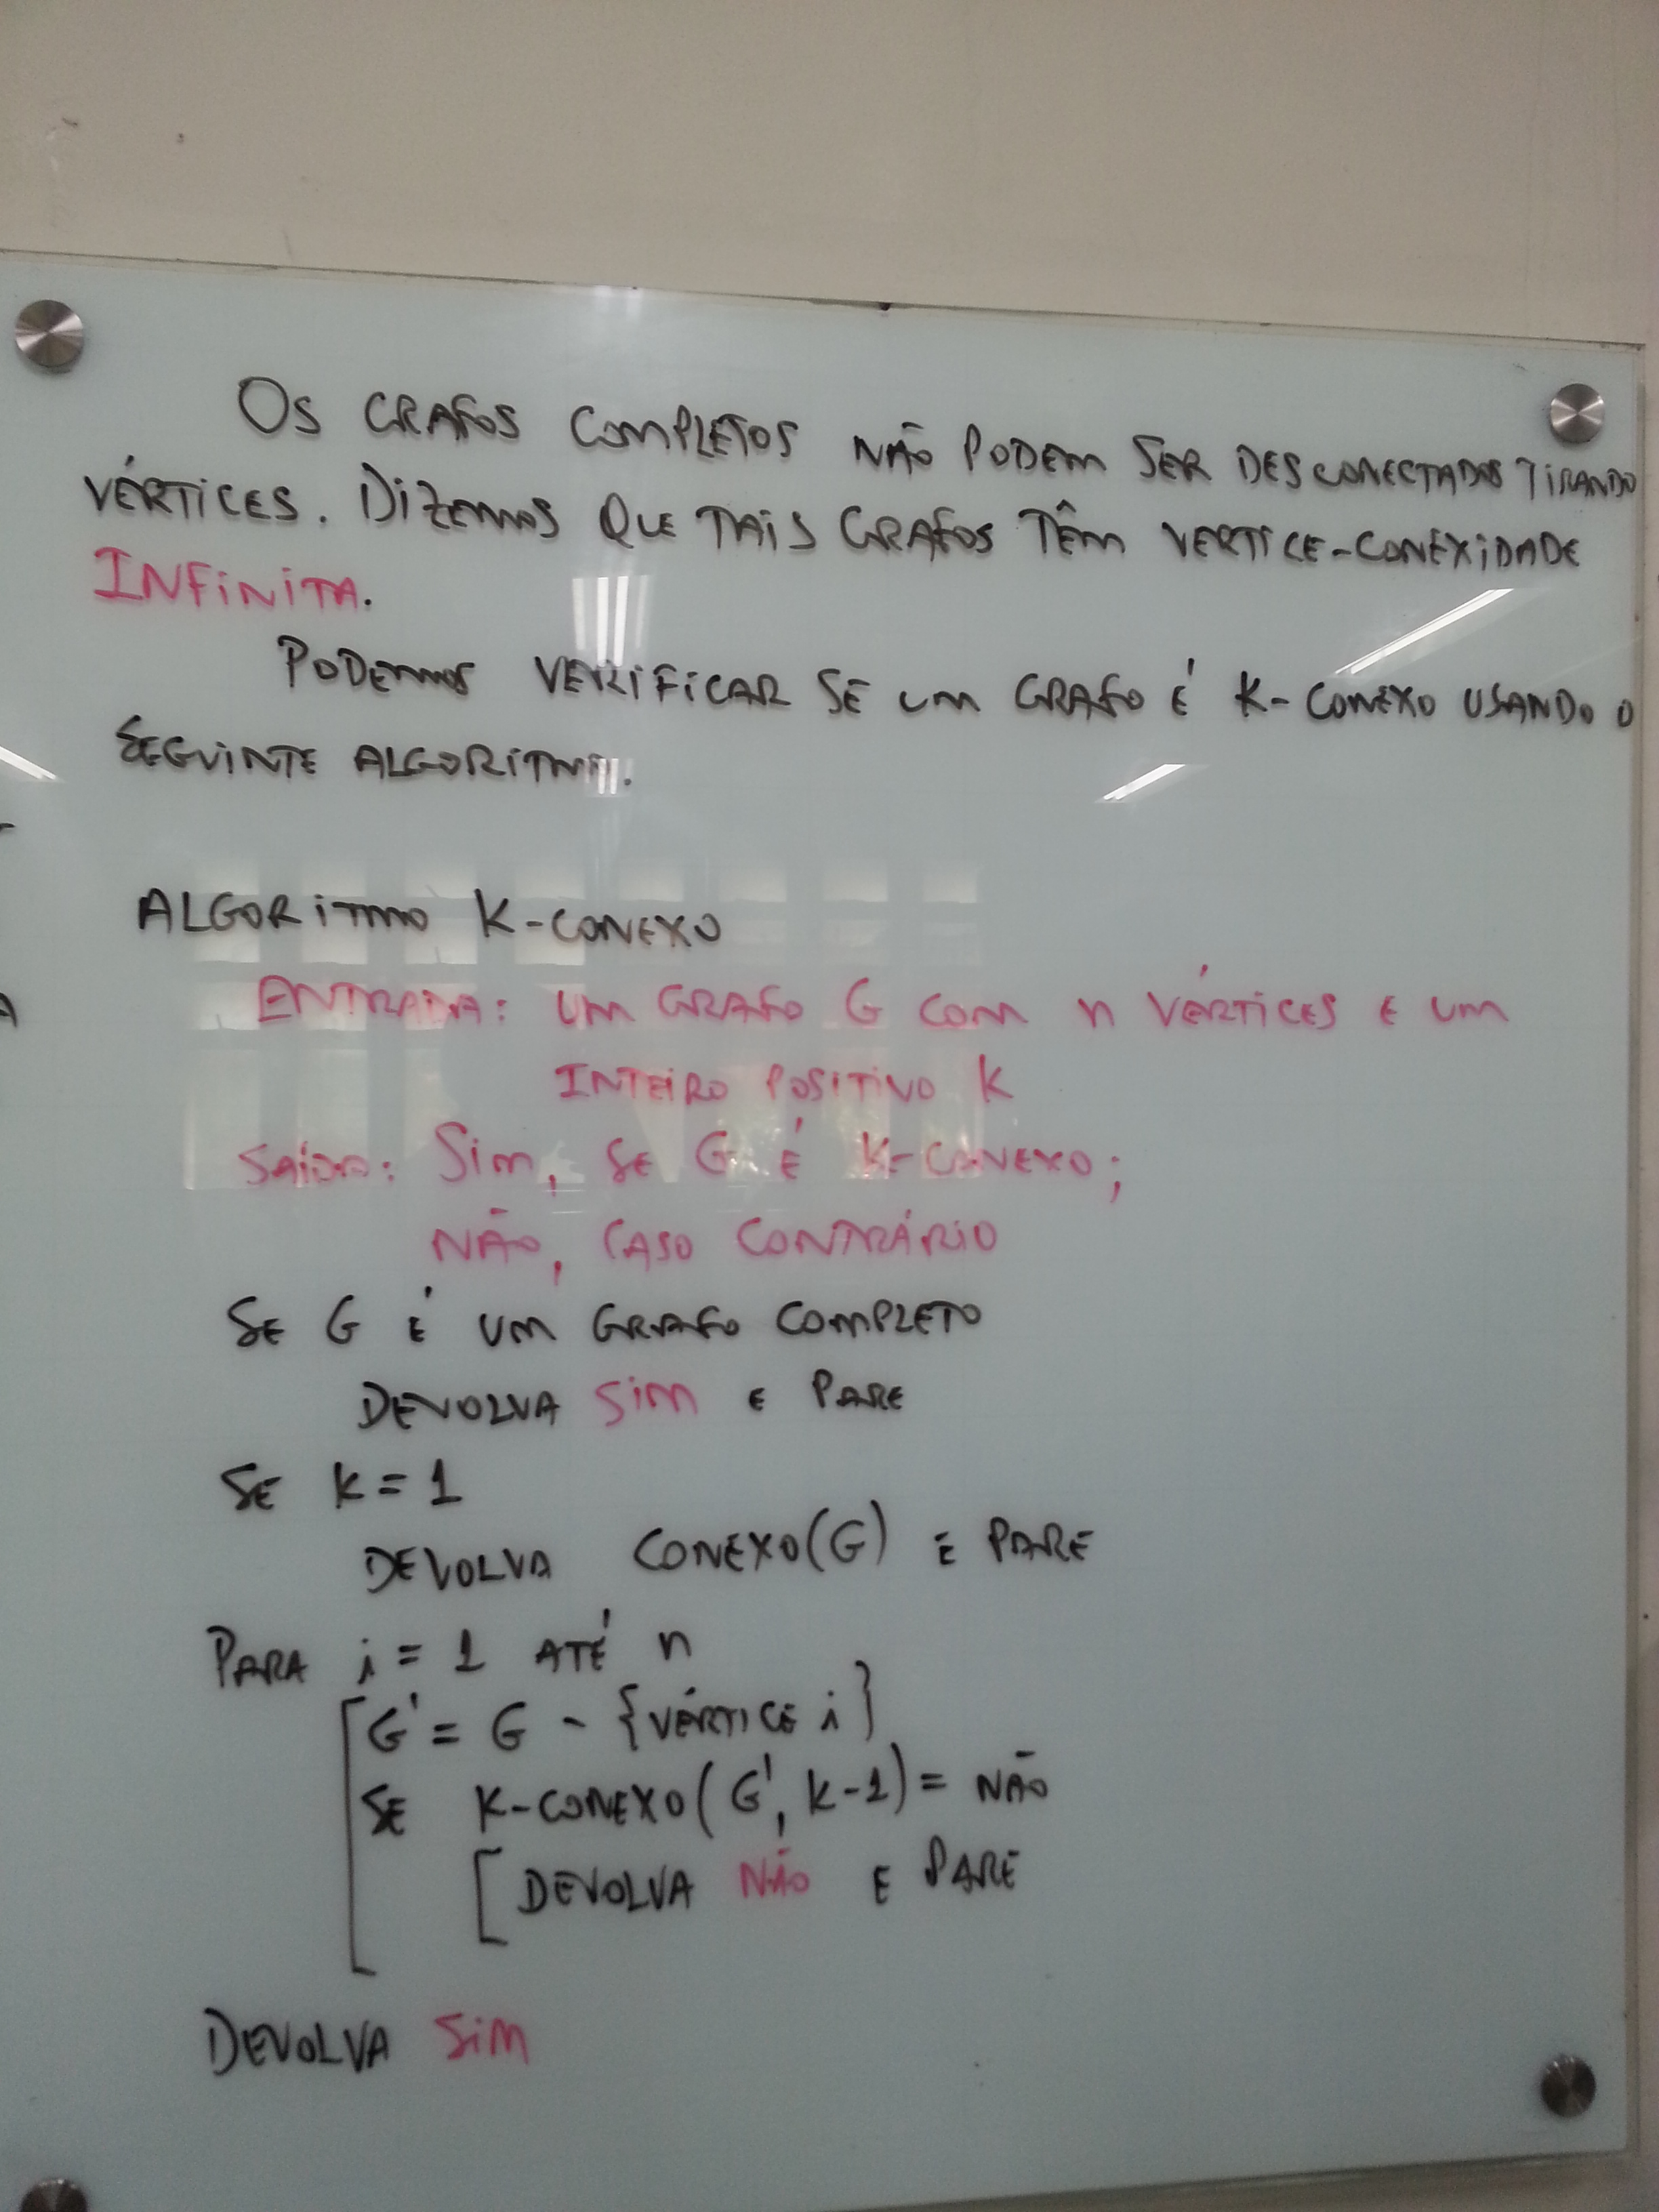 OS GRAFOS COMPLETOS NÃO PODEM SER DESCONECTADOS TIRANDO
VÉRTICES. DIZEMOS QUE TAIS GRAFOS TÊM VERTICE-CONEXIDADE
INFINITA.
PODEMOS VERIFICAR SE UM GRAFO É K-CONEXO USANDO O
SEGUINTE ALGORITMO.
ALGORITMO K-CONEXO
ENTRADA: UM GRAFO G COM n VÉRTICES E UM
INTEIRO POSITIVO K
SAÍDA: SIM, SE G É K-CONEXO;
NÃO, CASO CONTRÁRIO
SE G É UM GRAFO COMPLETO
DEVOLVA SIM E PARE
SE K = 1
DEVOLVA CONEXO(G) E PARE
PARA i = 1 ATÉ n
G' = G - {VÉRTICE i}
SE K-CONEXO(G', K-1) = NÃO
DEVOLVA NÃO E PARE
DEVOLVA SIM